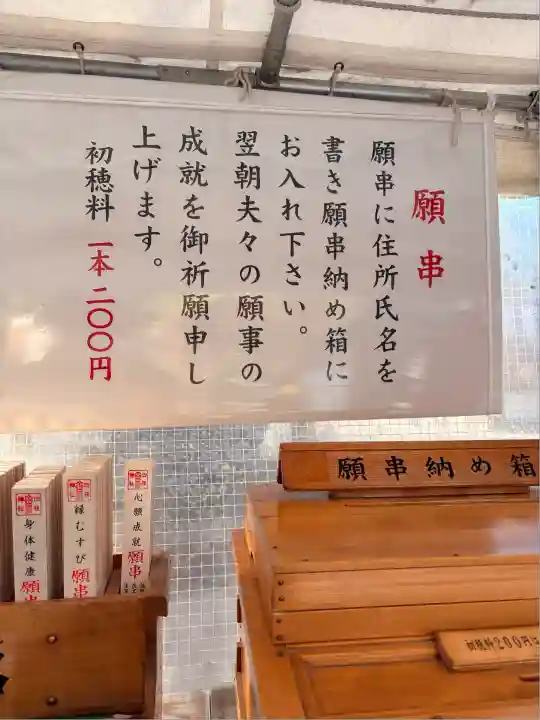 願串
願串に住所氏名を
書き願串納め箱に
お入れ下さい。
翌朝夫々の願事の
成就を御祈願申し
上げます。
初穂料 一本 二〇〇円
願串納め箱
身体健康 願串
縁むすび 願串
心願成就 願串
初穂料200円は